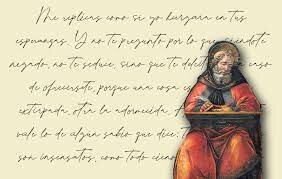 Me replicas como si yo hurgara en tus
esperanzas. Y no te pregunto por lo que, siéndote
negado, no te seduce, sino que te deleita en caso
de ofrecérsete, porque una cosa es
extirpada, otra la adormecida. A
vale lo de algún sabio que dice: T
son insensatos, como todo cieno